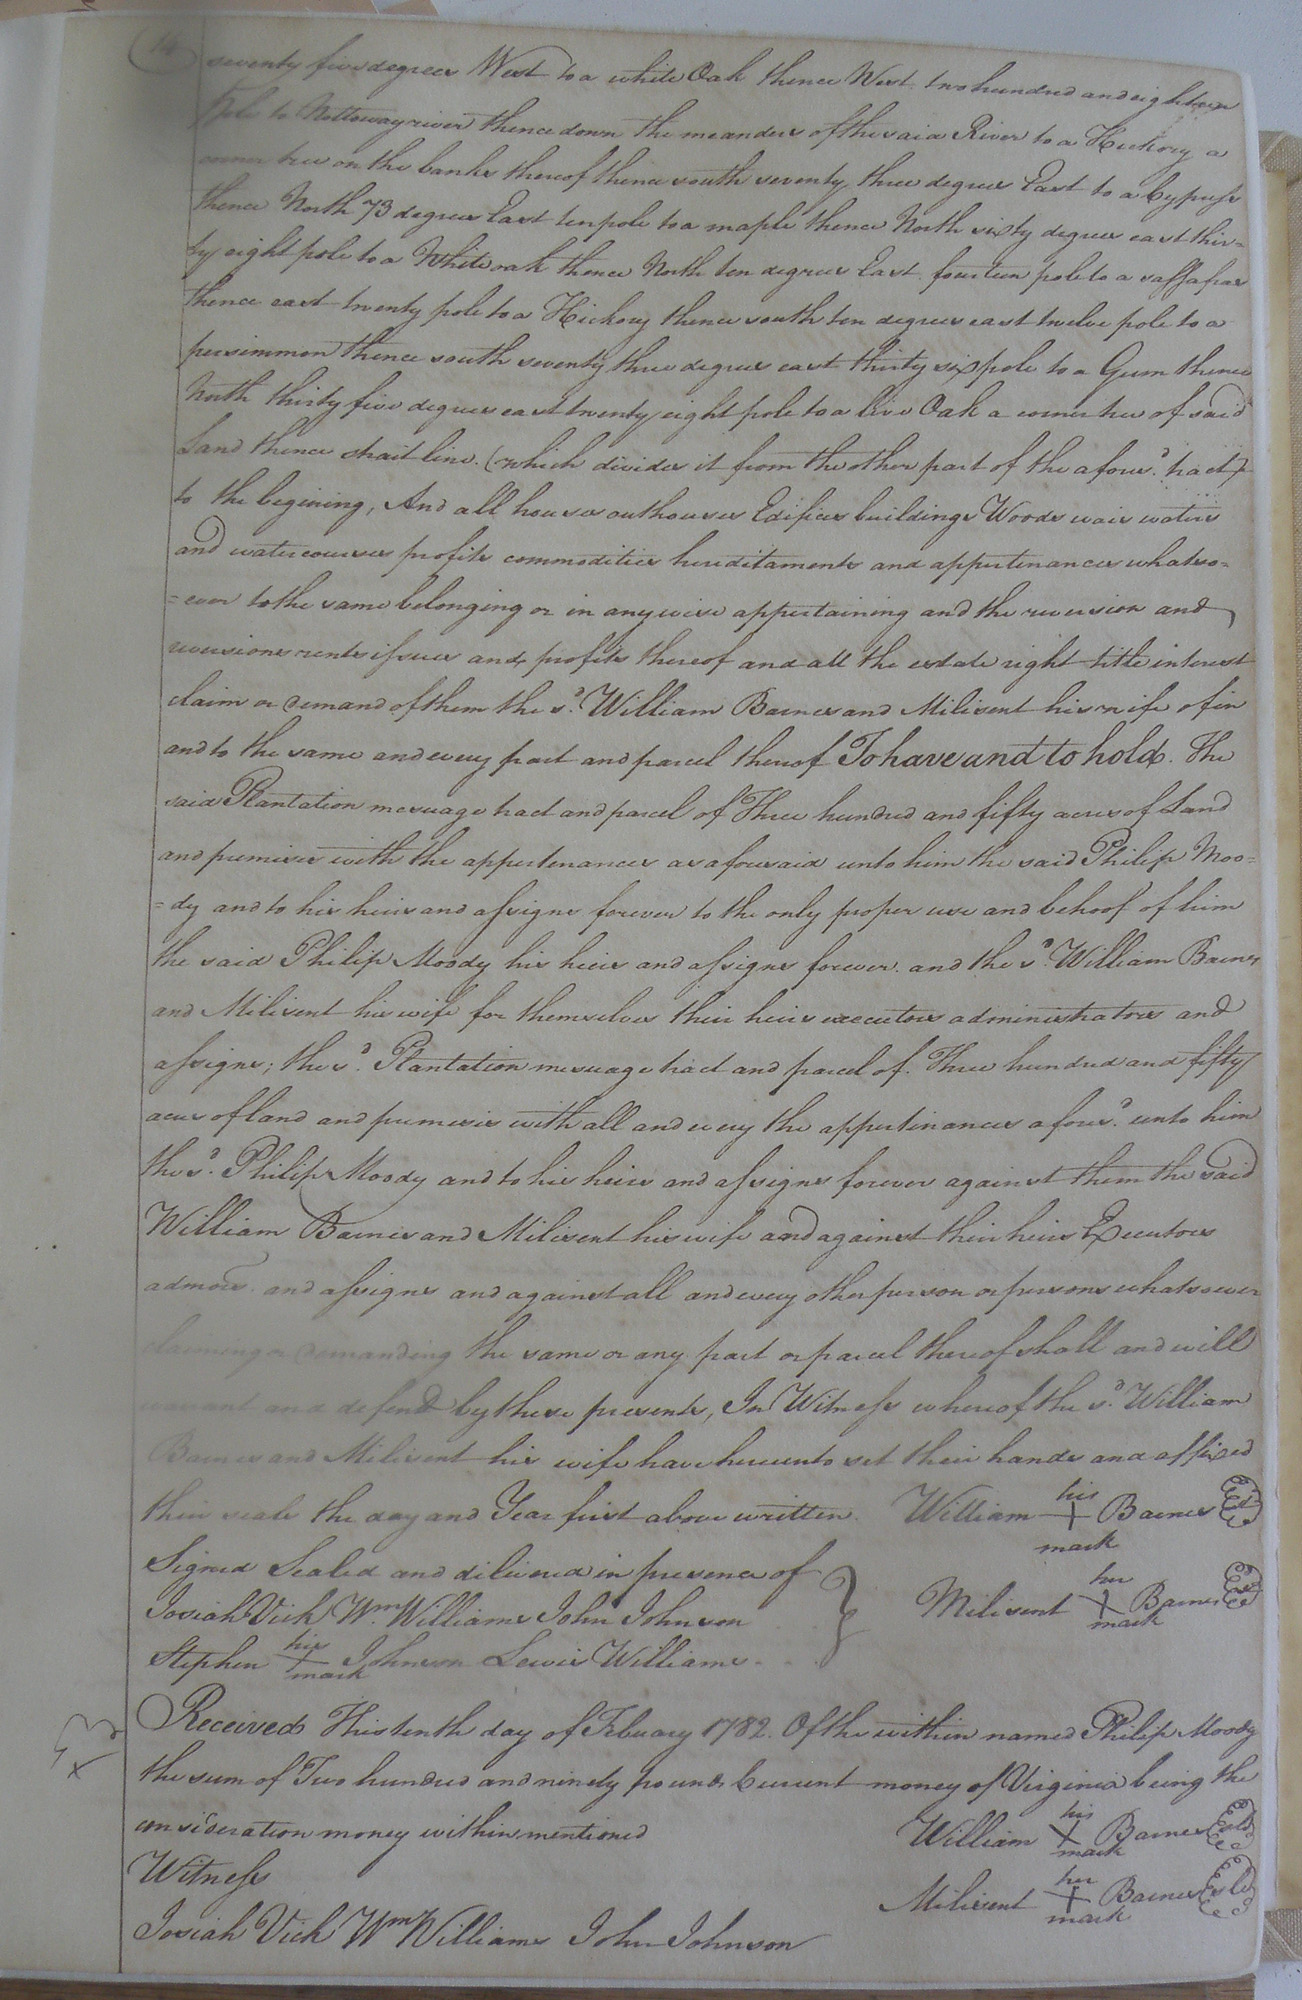 seventy five degrees West to a white Oak thence West two hundred and eighteen
pole to Nottoway river thence down the meanders of the said River to a Hickory a
corner tree on the banks thereof thence south seventy three degrees East to a Cypress
thence North 73 degrees East ten pole to a maple thence North sixty degrees east thir=
ty eight pole to a White oak thence North ten degrees East fourteen pole to a sassafras
thence east twenty pole to a Hickory thence south ten degrees east twelve pole to a
persimmon thence south seventy three degrees east thirty six pole to a Gum thence
North thirty five degrees east twenty eight pole to a live Oak a corner tree of said
Land thence strait line (which divides it from the other part of the afores.d tract)
to the begining, And all houses outhouses Edifices buildings Woods wais waters
and watercourses profits commodities hereditaments and appertenances whatso=
=ever to the same belonging or in any wise appertaining and the reversion and
reversions rents issues and profits thereof and all the estate right title interest
claim or demand of them the s.d William Barnes and Milisent his wife of in
and to the same and every part and parcel thereof To have and to hold. The
said Plantation mesuage tract and parcel of Three hundred and fifty acres of Land
and premises with the appertenances as aforesaid unto him the said Philip Moo=
=dy and to his heirs and assigns forever to the only proper use and behoof of him
the said Philip Moody his heirs and assigns forever. and the s.d William Barnes
and Milisent his wife for themselves their heirs executors administrators and
assigns; the s.d Plantation mesuage tract and parcel of Three hundred and fifty
acres of land and premises with all and every the appertinances afores.d unto him
the s.d Philip Moody and to his heirs and assigns forever against them the said
William Barnes and Milisent his wife and against their heirs Executors
admors. and assigns and against all and every other person or persons whatsoever
claiming or demanding the same or any part or parcel thereof shall and will
warrant and defend by these presents, In Witness whereof the s.d William
Barnes and Milisent his wife have hereunto set their hands and affixed
their seals the day and Year first above written. William his + mark Barnes
Signed Sealed and delivered in presence of
Josiah Vick Wm Williams John Johnson Milisent her + mark Barnes
Stephen his + mark Johnson Lewis Williams
Received This tenth day of Febuary 1782. Of the within named Philip Moody
the sum of Two hundred and ninety pounds Current money of Virginia being the
consideration money within mentioned William his + mark Barnes
Witness
Milisent her + mark Barnes
Josiah Vick Wm Williams John Johnson